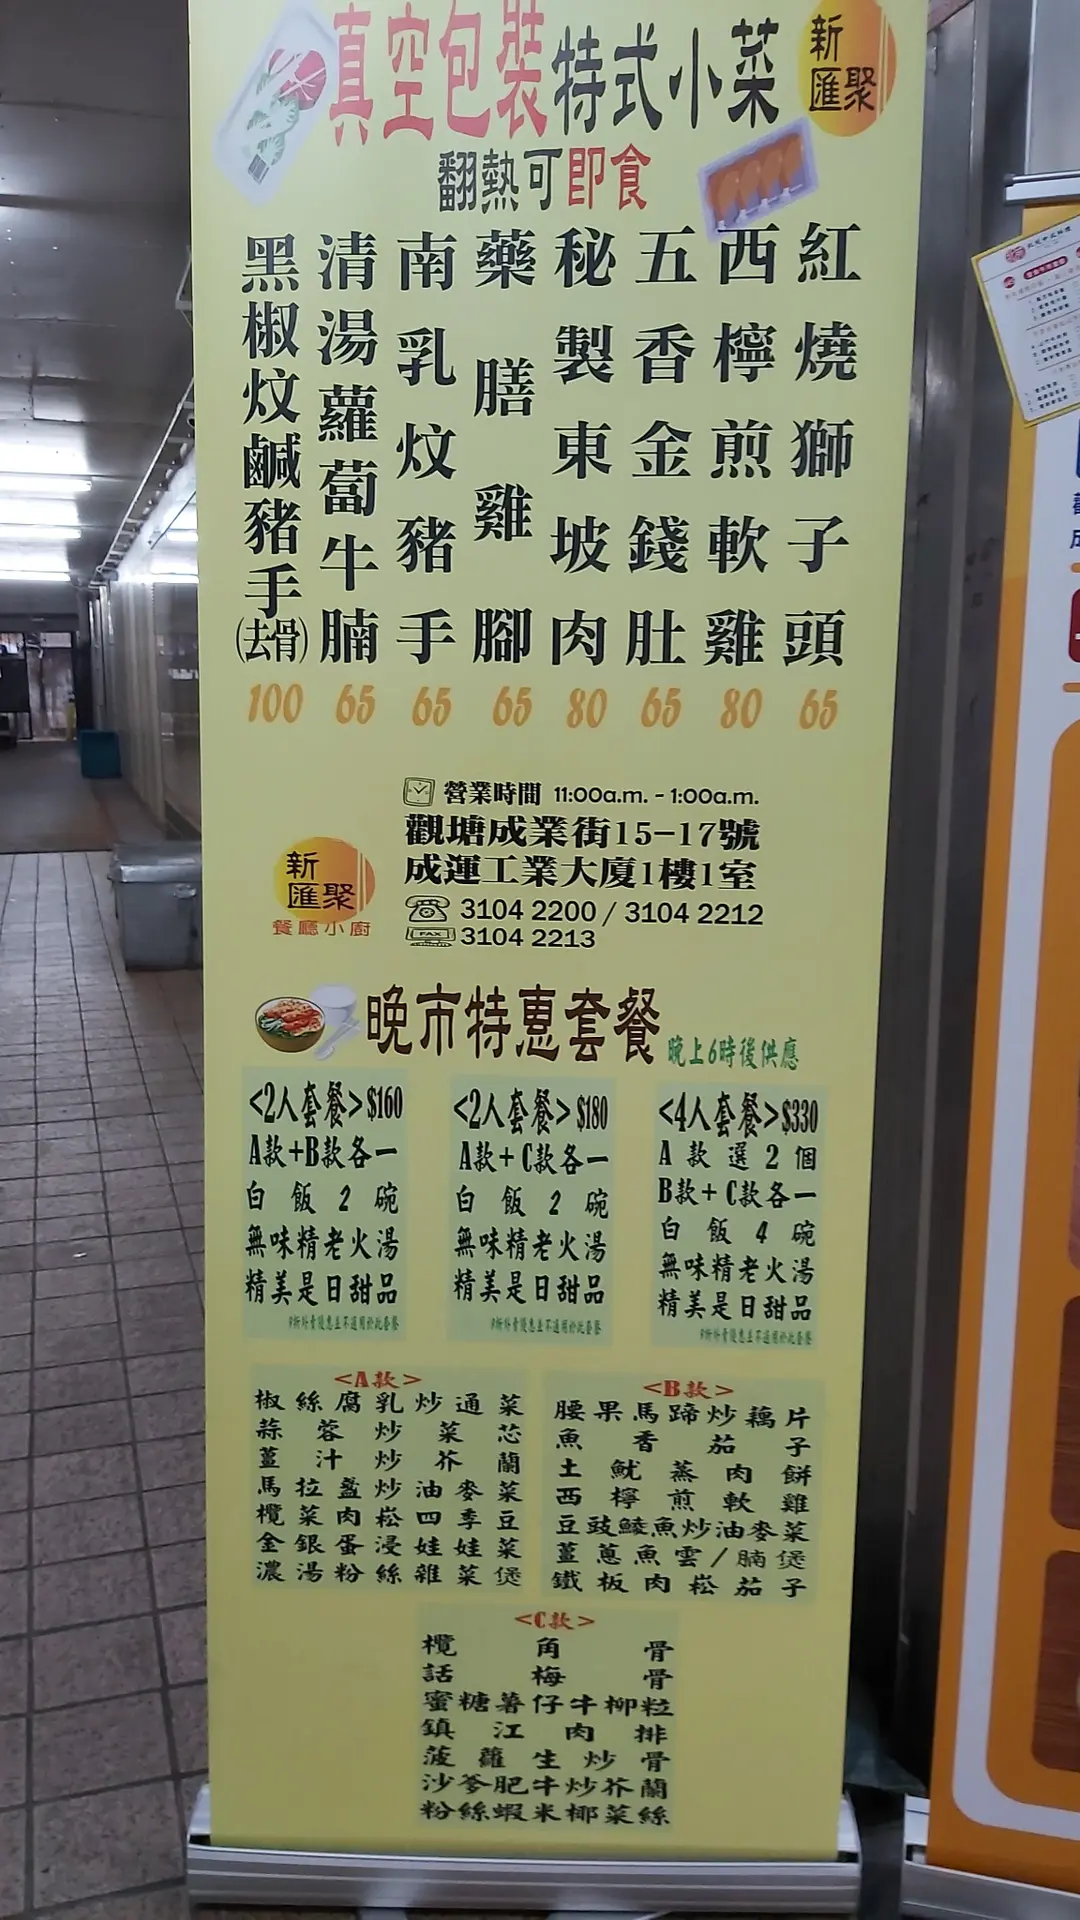 真空包裝特式小菜
新
匯聚
翻熱可即食
紅燒獅子頭
西檸煎軟雞
五香金錢肚
秘製東坡肉
藥膳雞腳
南乳炆豬手
清湯蘿蔔牛腩
黑椒炆鹹豬手(去骨)
100 65 65 65 80 65 80 65
營業時間 11:00a.m. - 1:00a.m.
觀塘成業街15-17號
成運工業大廈1樓1室
3104 2200 / 3104 2212
FAX 3104 2213
新
匯聚
餐廳小廚
晚市特惠套餐 晚上6時後供應
<2人套餐>$160
A款+B款各一
白飯2碗
無味精老火湯
精美是日甜品
<2人套餐>$180
A款+C款各一
白飯2碗
無味精老火湯
精美是日甜品
<4人套餐>$330
A款選2個
B款+C款各一
白飯4碗
無味精老火湯
精美是日甜品
<A款>
椒絲腐乳炒通菜
蒜蓉炒菜芯
薑汁炒芥蘭
馬拉盞炒油麥菜
欖菜肉崧四季豆
金銀蛋浸娃娃菜
濃湯粉絲雜菜煲
<B款>
腰果馬蹄炒藕片
魚香茄子
土魷蒸肉餅
西檸煎軟雞
豆豉鯪魚炒油麥菜
薑蔥魚雲/腩煲
鐵板肉崧茄子
<C款>
欖角骨
話梅骨
蜜糖薯仔牛柳粒
鎮江肉排
菠蘿生炒骨
沙爹肥牛炒芥蘭
粉絲蝦米椰菜絲